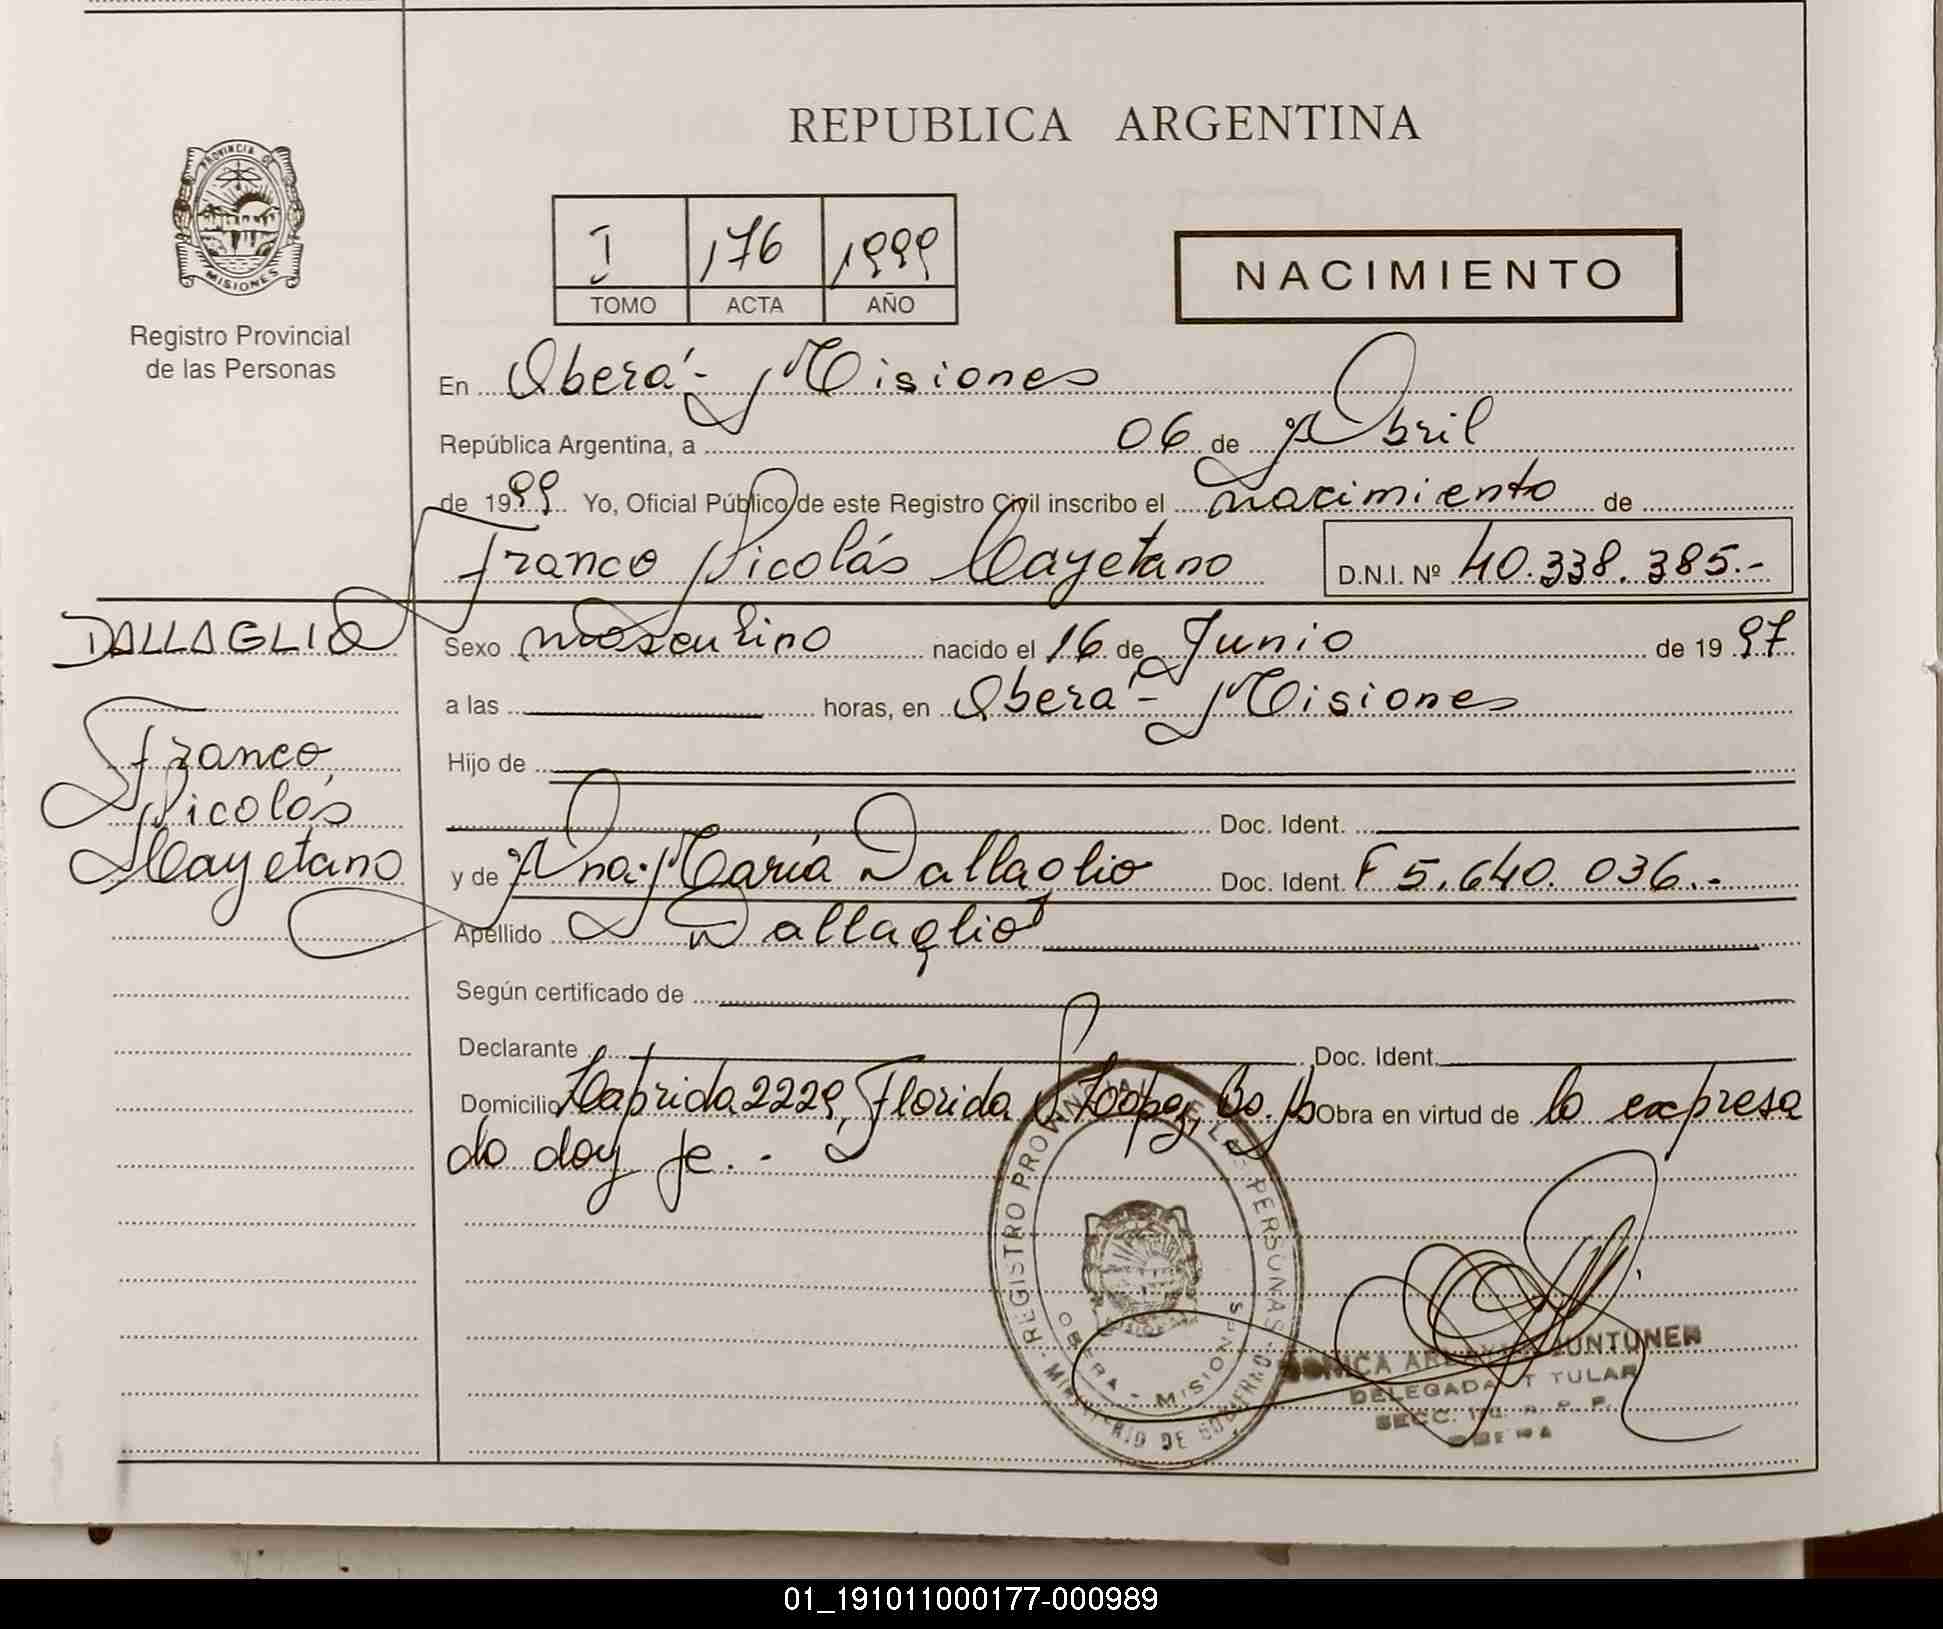 REPUBLICA ARGENTINA
PROVINCIA DE
MISIONES
Registro Provincial
de las Personas
I 176 1999
TOMO ACTA AÑO
NACIMIENTO
En Oberá - Misiones
República Argentina, a 06 de Abril
de 1999 Yo, Oficial Público de este Registro Civil inscribo el nacimiento de
Franco Nicolás Cayetano D.N.I. Nº 40.338.385.-
DALLAGLIO
Franco
Nicolás
Cayetano
Sexo masculino nacido el 16 de Junio de 1997
a las horas, en Oberá - Misiones
Hijo de
Doc. Ident.
y de Ana María Dallaglio Doc. Ident. F 5.640.036.-
Apellido Dallaglio
Según certificado de
Declarante Doc. Ident.
Domicilio Laprida 2229, Florida Bs. Obra en virtud de lo expresa
do doy fe.-
REGISTRO PROVINCIAL DE LAS PERSONAS
MINISTERIO DE GOBIERNO
OBERA - MISIONES
DELEGADA TITULAR
SECC. R. P. P.
OBERA
01_191011000177-000989